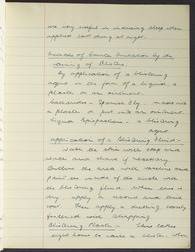 are very useful in inducing sleep when
applied last thing at night.
Methods of Counter Irritation by the
raising of Blisters
By application of a blistering
agent in the form of a liquid, a
plaster or an ointment.
Cantharides - Spanish Fly - made into
a plaster or put into an ointment
Liquid Epispasticus is a blistering
agent
application of a Blistering fluid -
Wash the skin with soap and
water and shave if necessary
Outline the area with vaseline and
paint the inside of the circle with
the blistering fluid. When this is
dry apply a second and one
coat. Then apply a dressing loosely
fastened with strapping
Blistering Plaster - This takes
eight hours to raise a blister. When